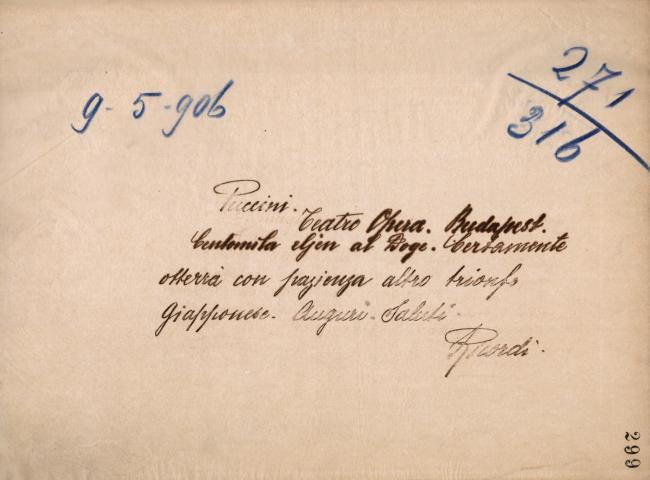 271
316
9-5-906
Puccini.
Teatro Opera. Budapest.
Centomila eljen al Doge. Certamente
otterrà con pazienza altro trionfo
Giapponese. Auguri. Saluti.
Ricordi.
299